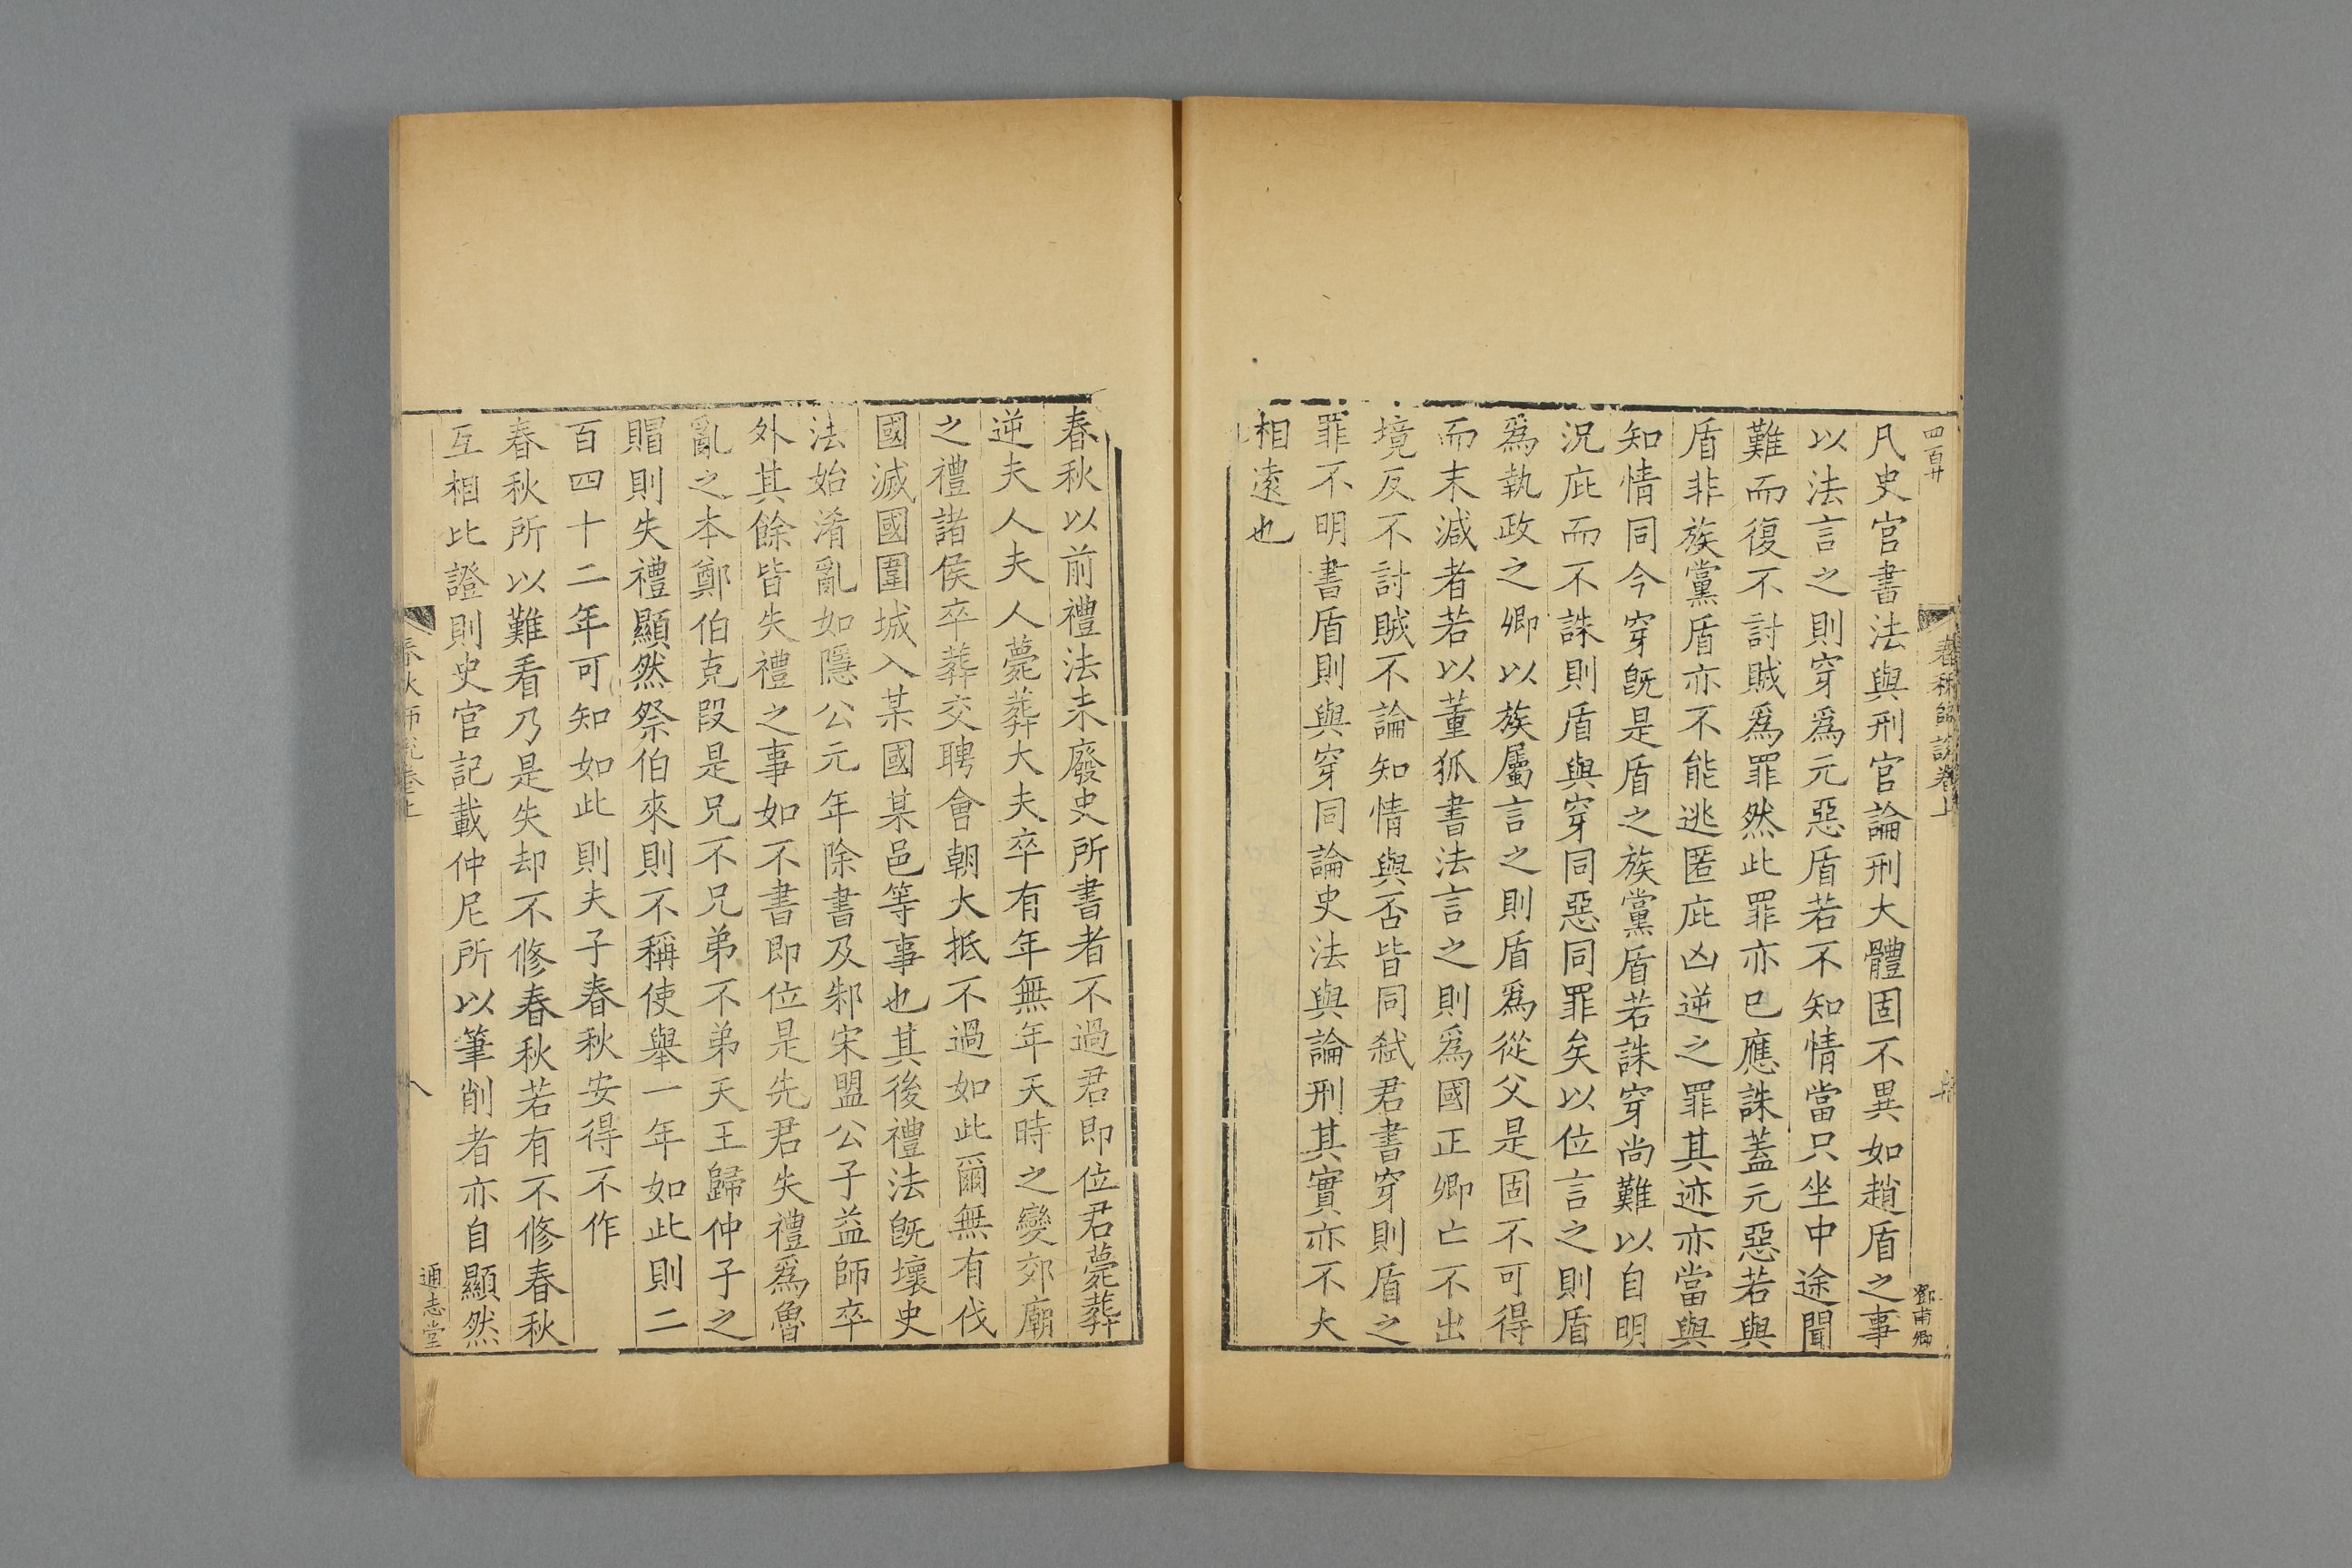 四百廿
春秋師說卷上
鄧甫卿
凡史官書法與刑官論刑大體固不異如趙盾之事
以法言之則穿爲元惡盾若不知情當只坐中途聞
難而復不討賊爲罪然此罪亦已應誅蓋元惡若與
盾非族黨盾亦不能逃匿庇凶逆之罪其迹亦當與
知情同今穿旣是盾之族黨盾若誅穿尚難以自明
況庇而不誅則盾與穿同惡同罪矣以位言之則盾
爲執政之卿以族屬言之則盾爲從父是固不可得
而末減者若以董狐書法言之則爲國正卿亡不出
境反不討賊不論知情與否皆同弒君書穿則盾之
罪不明書盾則與穿同論史法與論刑其實亦不大
相遠也
春秋以前禮法未廢史所書者不過君即位君薨葬
逆夫人夫人薨葬大夫卒有年無年天時之變郊廟
之禮諸侯卒葬交聘會朝大抵不過如此爾無有伐
國滅國圍城入某國某邑等事也其後禮法旣壞史
法始淆亂如隱公元年除書及邾宋盟公子益師卒
外其餘皆失禮之事如不書即位是先君失禮爲魯
亂之本鄭伯克段是兄不兄弟不弟天王歸仲子之
賵則失禮顯然祭伯來則不稱使舉一年如此則二
百四十二年可知如此則夫子春秋安得不作
春秋所以難看乃是失却不修春秋若有不修春秋
互相比證則史官記載仲尼所以筆削者亦自顯然
春秋師說卷上
八
通志堂